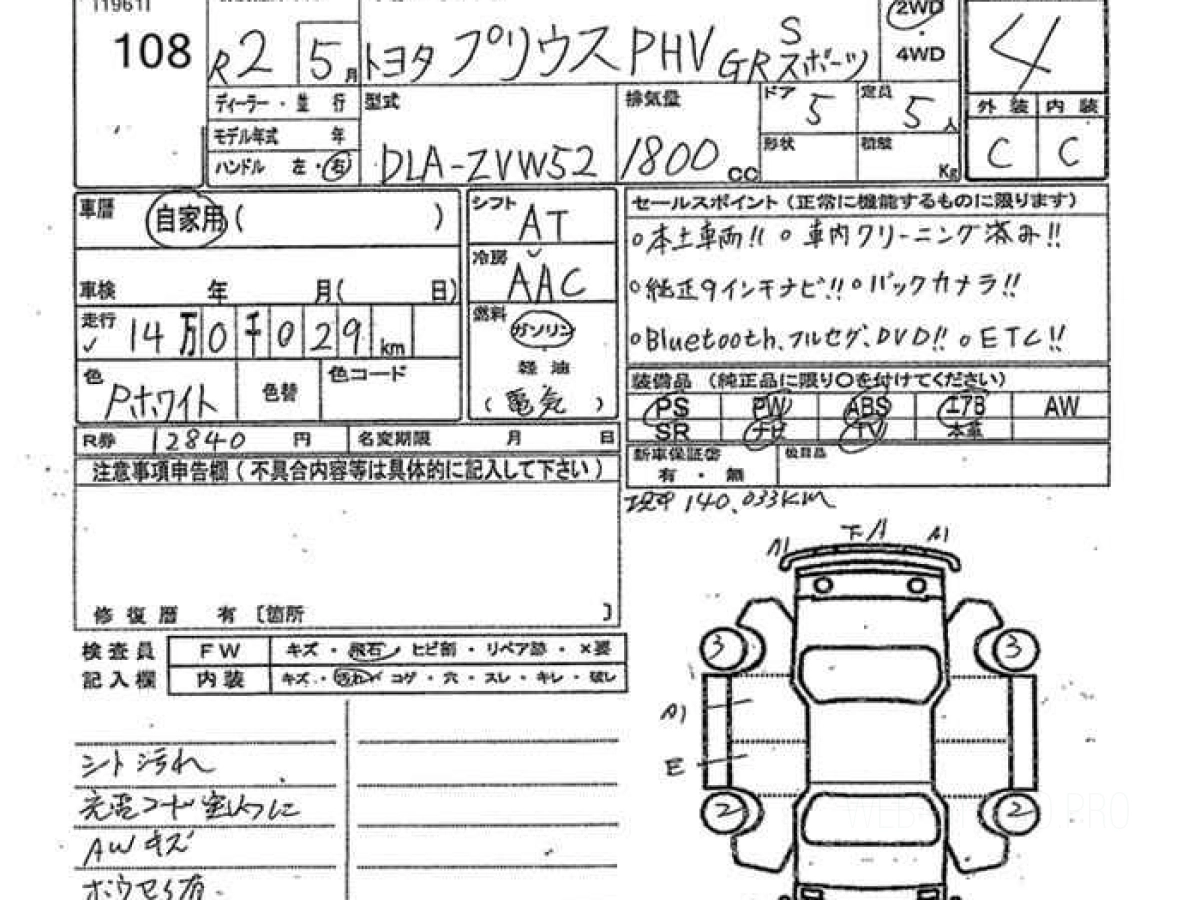 [1961]
108
R2 5月
トヨタ プリウス PHV S
GR スポーツ
2WD
4WD
4
外装 内装
C C
ディーラー・並行
モデル年式 年
ハンドル 左・右
型式
DLA-ZVW52
排気量
1800 CC
ドア 5
定員 5人
形状
積載 Kg
車暦 自家用( )
車検 年 月( 日)
走行 14万0千029km
色 Pホワイト
色替
色コード
シフト AT
冷房 AAC
燃料 ガソリン
軽油
(電気)
セールスポイント(正常に機能するものに限ります)
○本土車両!! ○車内クリーニング済み!!
○純正9インチナビ!! ○バックカメラ!!
○Bluetooth、フルセグ、DVD!! ○ETC!!
装備品 (純正品に限り○を付けてください)
PS PW ABS エアB AW
SR ナビ TV 本革
R券 12840 円
名変期限 月 日
新車保証書
有・無
注意事項申告欄(不具合内容等は具体的に記入して下さい)
修復歴 有〔箇所 〕
140,033KM
検査員
記入欄
FW キズ・飛石・ヒビ割・リペア跡・×要
内装 キズ・汚れ・コゲ・穴・スレ・キレ・破レ
A1 下A A1
3 3
A1
E
2 2
シート汚れ
AWキズ
WEB PRO